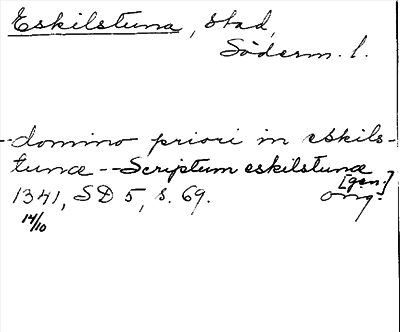 Eskilstuna, stad,
Söderm. l.
--domino priori in eskils-
tuna--Scriptum eskilstunæ
[gen.]
1341, SD 5, s. 69. orig.
14/10